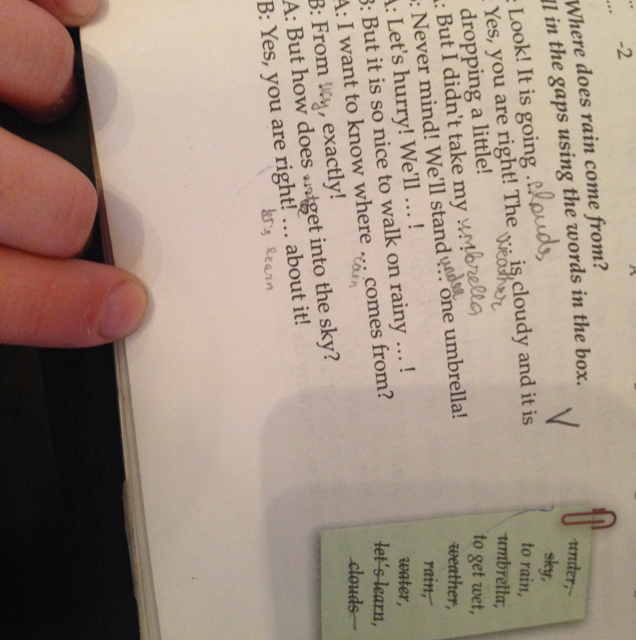 -2
Where does rain come from?
ll in the gaps using the words in the box.
: Look! It is going . clouds
: Yes, you are right! The weather is cloudy and it is
dropping a little!
: But I didn't take my umbrella
: Never mind! We'll stand under ... one umbrella!
A: Let's hurry! We'll ... !
B: But it is so nice to walk on rainy ... !
A: I want to know where ... rain comes from?
B: From , exactly!
A: But how does get into the sky?
B: Yes, you are right! ... about it!
let's learn
under,
sky,
to rain,
umbrella,
to get wet,
weather,
rain,
water,
let's learn,
clouds